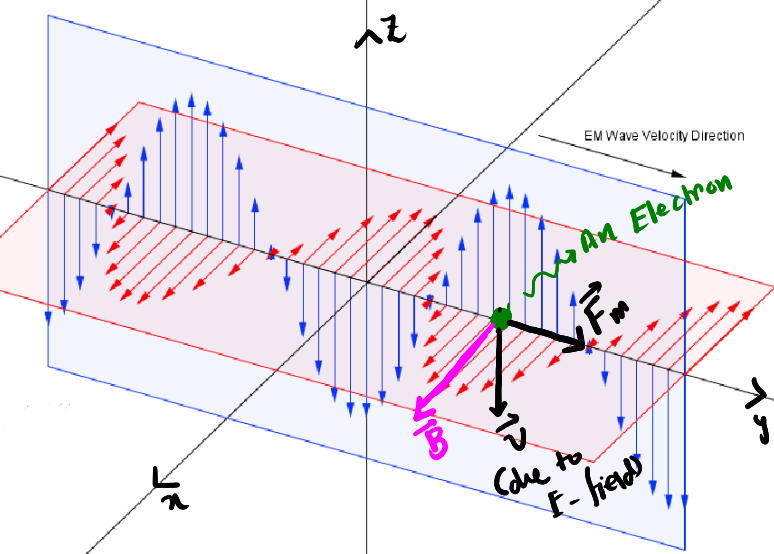 Z
EM Wave Velocity Direction
An Electron
F m
B
v
(due to
E-field)
y
x